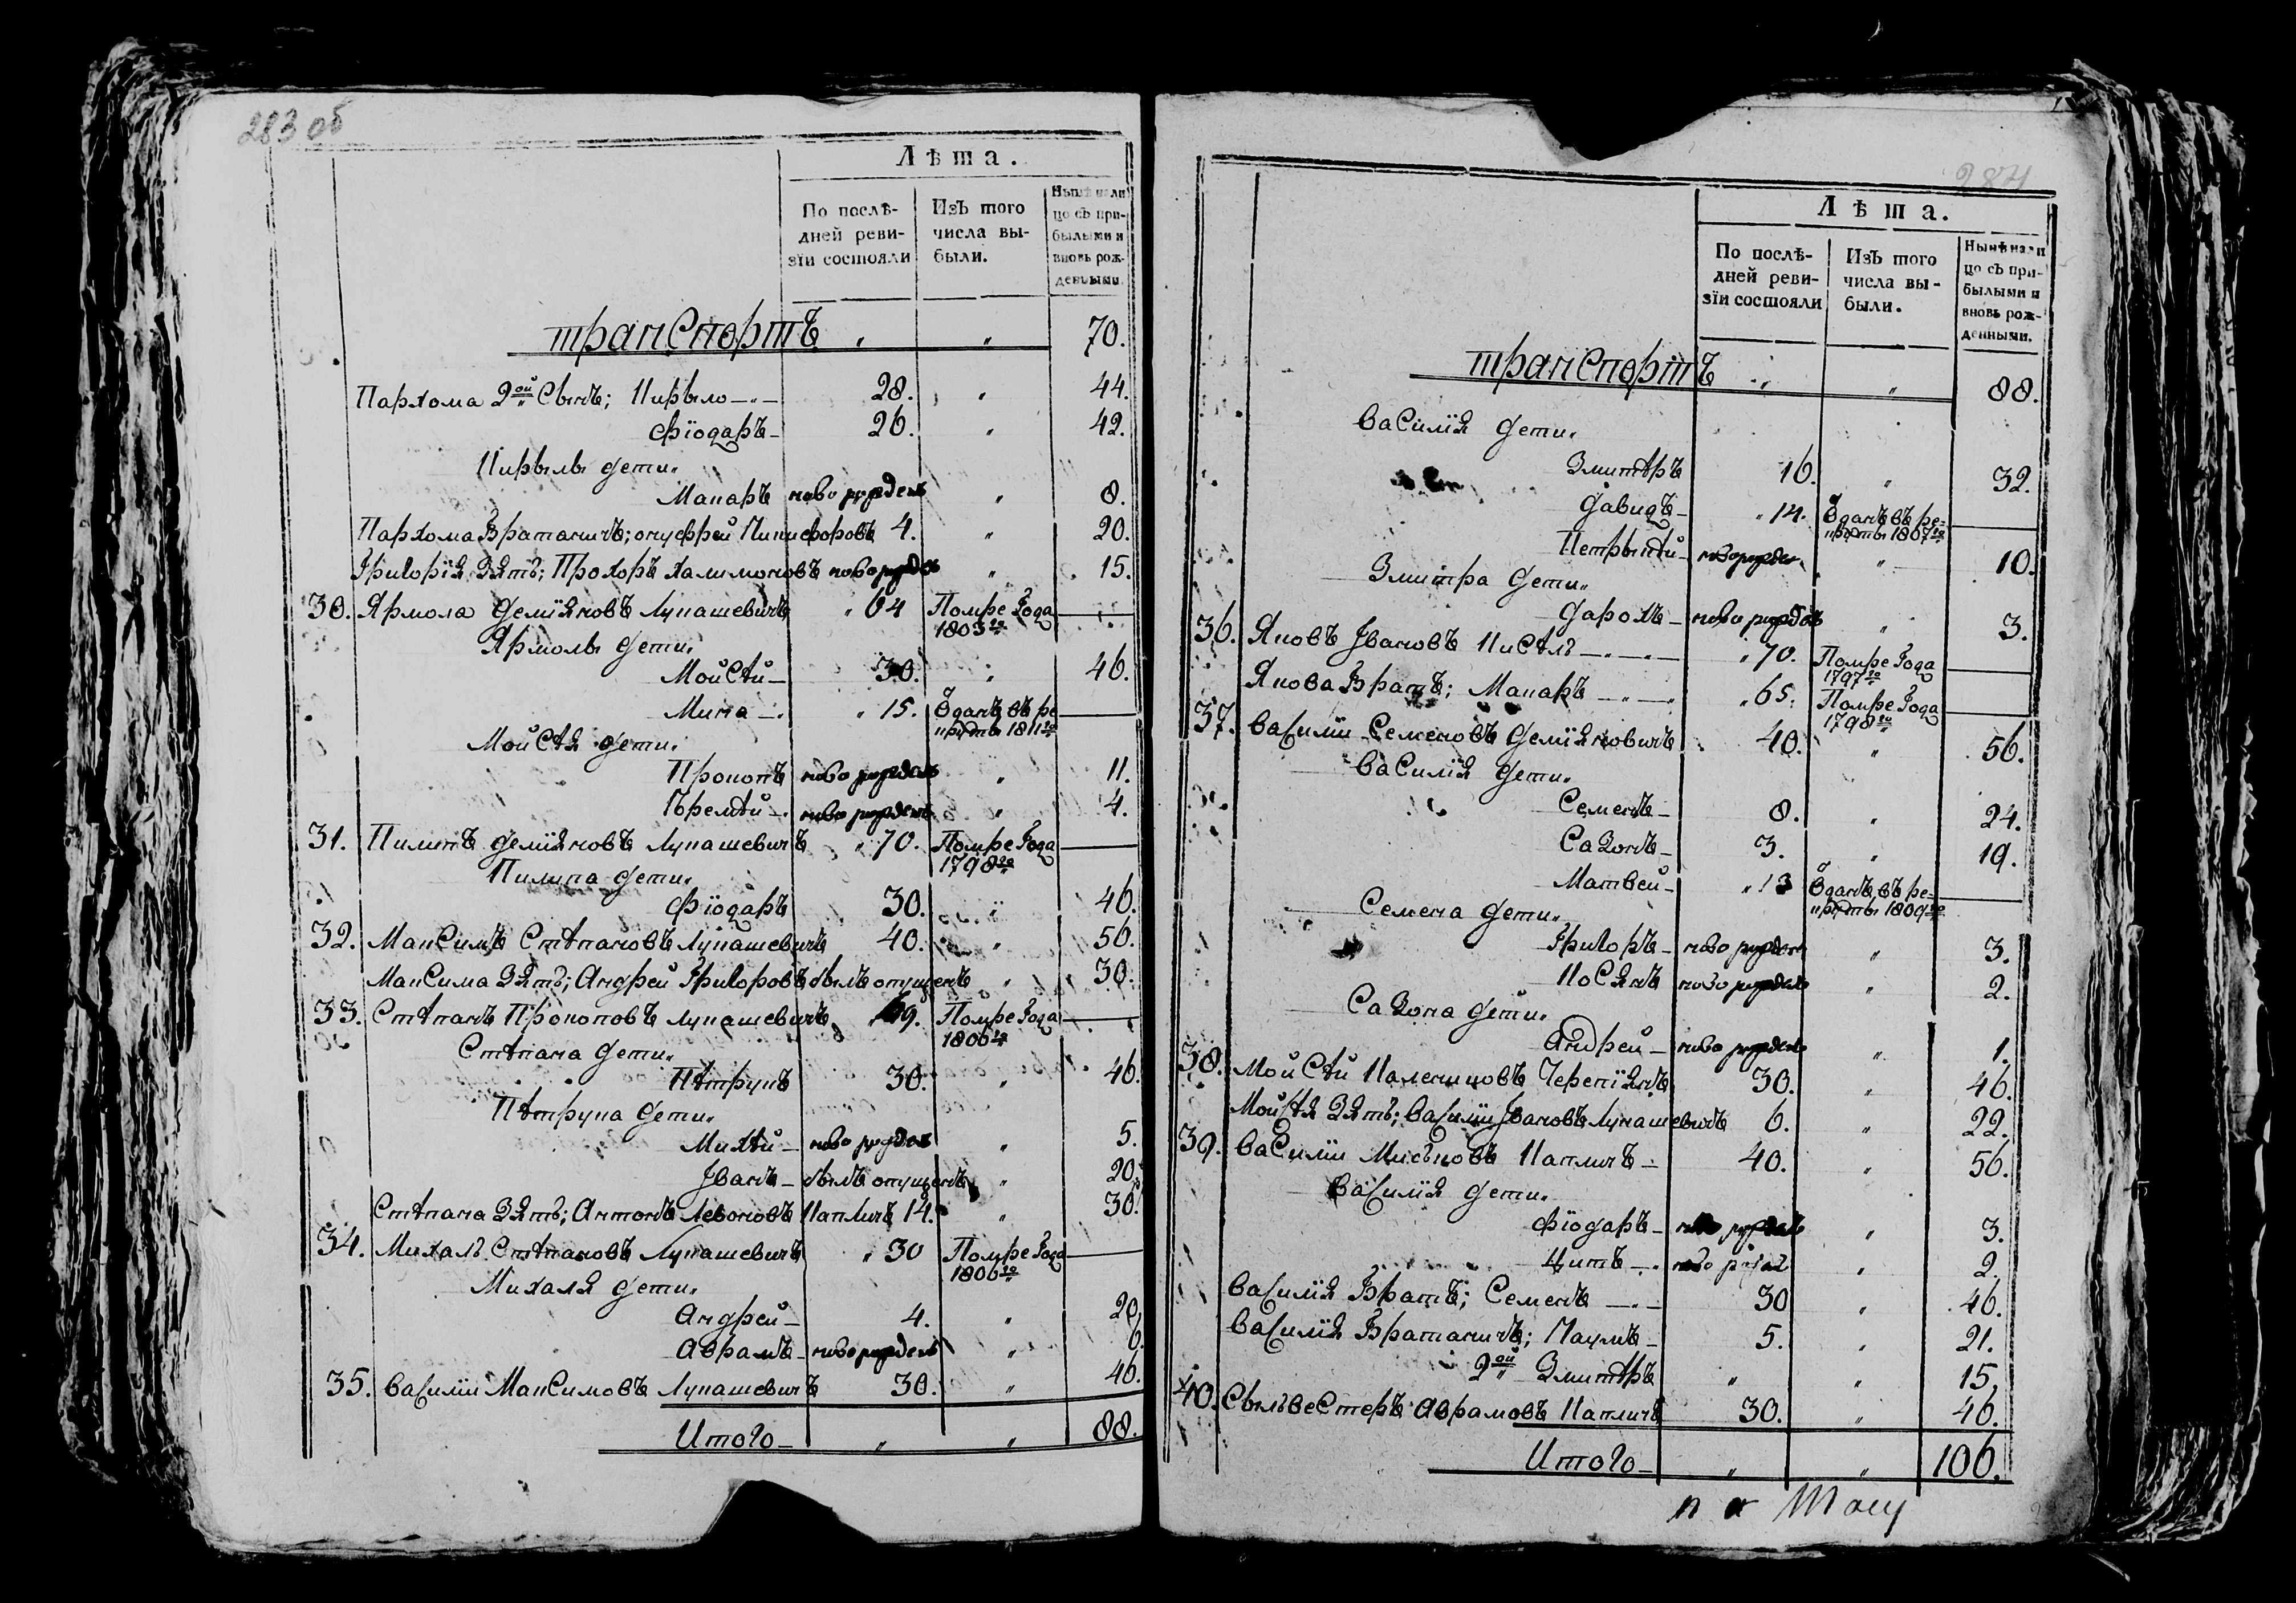 283 об
Лѣта.
По послѣ-
дней реви-
зїи состояли
Изъ того
числа вы-
были.
Нынѣ нали
цо съ при-
былыми и
вновь рож-
денными.
транспортъ " " 70.
Пархома 2ой сынъ; Кирыло 28. " 44.
Фїодаръ 26. " 42.
Кирылы дети.
Макаръ ново рожденъ " 8.
Пархома братаничъ; онуфрей Никифоровъ 4. " 20.
Григорїя зять; Прохоръ халимоновъ новорожденъ " 15.
30. Ярмола Демїяновъ Лукашевичъ 64 Помре года
1803го
Ярмолы дети.
Мойсѣй 30. " 46.
Мина 15. Отданъ въ ре
круты 1811го
Мойсѣя дети.
Прокопъ ново рожденъ " 11.
Ѣремѣй ново рожденъ " 4.
31. Пилипъ Демїяновъ Лукашевичъ 70. Помре года
1798го
Пилипа дети.
Фїодаръ 30. " 46.
32. Максимъ Стѣпановъ Лукашевичъ 40. " 56.
Максима зять; Андрей Григоровъ былъ опущенъ " 30.
33. Стѣпанъ Прокоповъ Лукашевичъ 49. Помре года
1806го
Стѣпана дети.
Пѣтрукъ 30. " 46.
Пѣтрука дети.
Михѣй ново рожденъ " 5.
Иванъ былъ опущенъ " 20.
Стѣпана зять; Антонъ Левоновъ Капличъ 14. " 30.
34. Михалъ Стѣпановъ Лукашевичъ 30 Помре года
1806го
Михаля дети.
Андрей 4. " 20.
Аврамъ ново рожденъ " 6.
35. Василїи Максимовъ Лукашевичъ 30. " 46.
Итого " " 88.
284
Лѣта.
По послѣ-
дней реви-
зїи состояли
Изъ того
числа вы-
были.
Нынѣ нали
цо съ при-
былыми и
вновь рож-
денными.
транспортъ " " 88.
Василїя дети.
Змитѣръ 16. " 32.
Давидъ 14. Отданъ въ ре-
круты 1807го
Кетрыѣй новорожден " 10.
Змитра дети.
Дарохъ ново рожденъ " 3.
36. Яковъ Ивановъ Кисѣль 70. Помре года
1797го
Якова братъ; Макаръ 65. Помре года
1798го
37. Василїи Семеновъ Демїяновичъ 40. " 56.
Василїя дети.
Семенъ 8. " 24.
Сазонъ 3. " 19.
Матвей 13 Отданъ въ ре-
круты 1809го
Семена дети.
Григоръ ново рожденъ " 3.
Косянъ ново рожденъ " 2.
Сазона дети.
Андрей ново рожденъ " 1.
38. Мойсѣй Калениковъ Черепїянъ 30. " 46.
Мойсѣя зять; Василїи Ивановъ Лукашевичъ 6. " 22.
39. Василїи Миськовъ Капличъ 40. " 56.
Василїя дети.
Фїодаръ ново рожденъ " 3.
Титъ ново рожд " 2
Василїя братъ; Семенъ 30 " 46.
Василїя братаничъ; Наумъ 5. " 21.
2ой Змитѣръ " " 15.
40. Сыльвестеръ Аврамовъ Капличъ 30. " 46.
Итого " " 106.